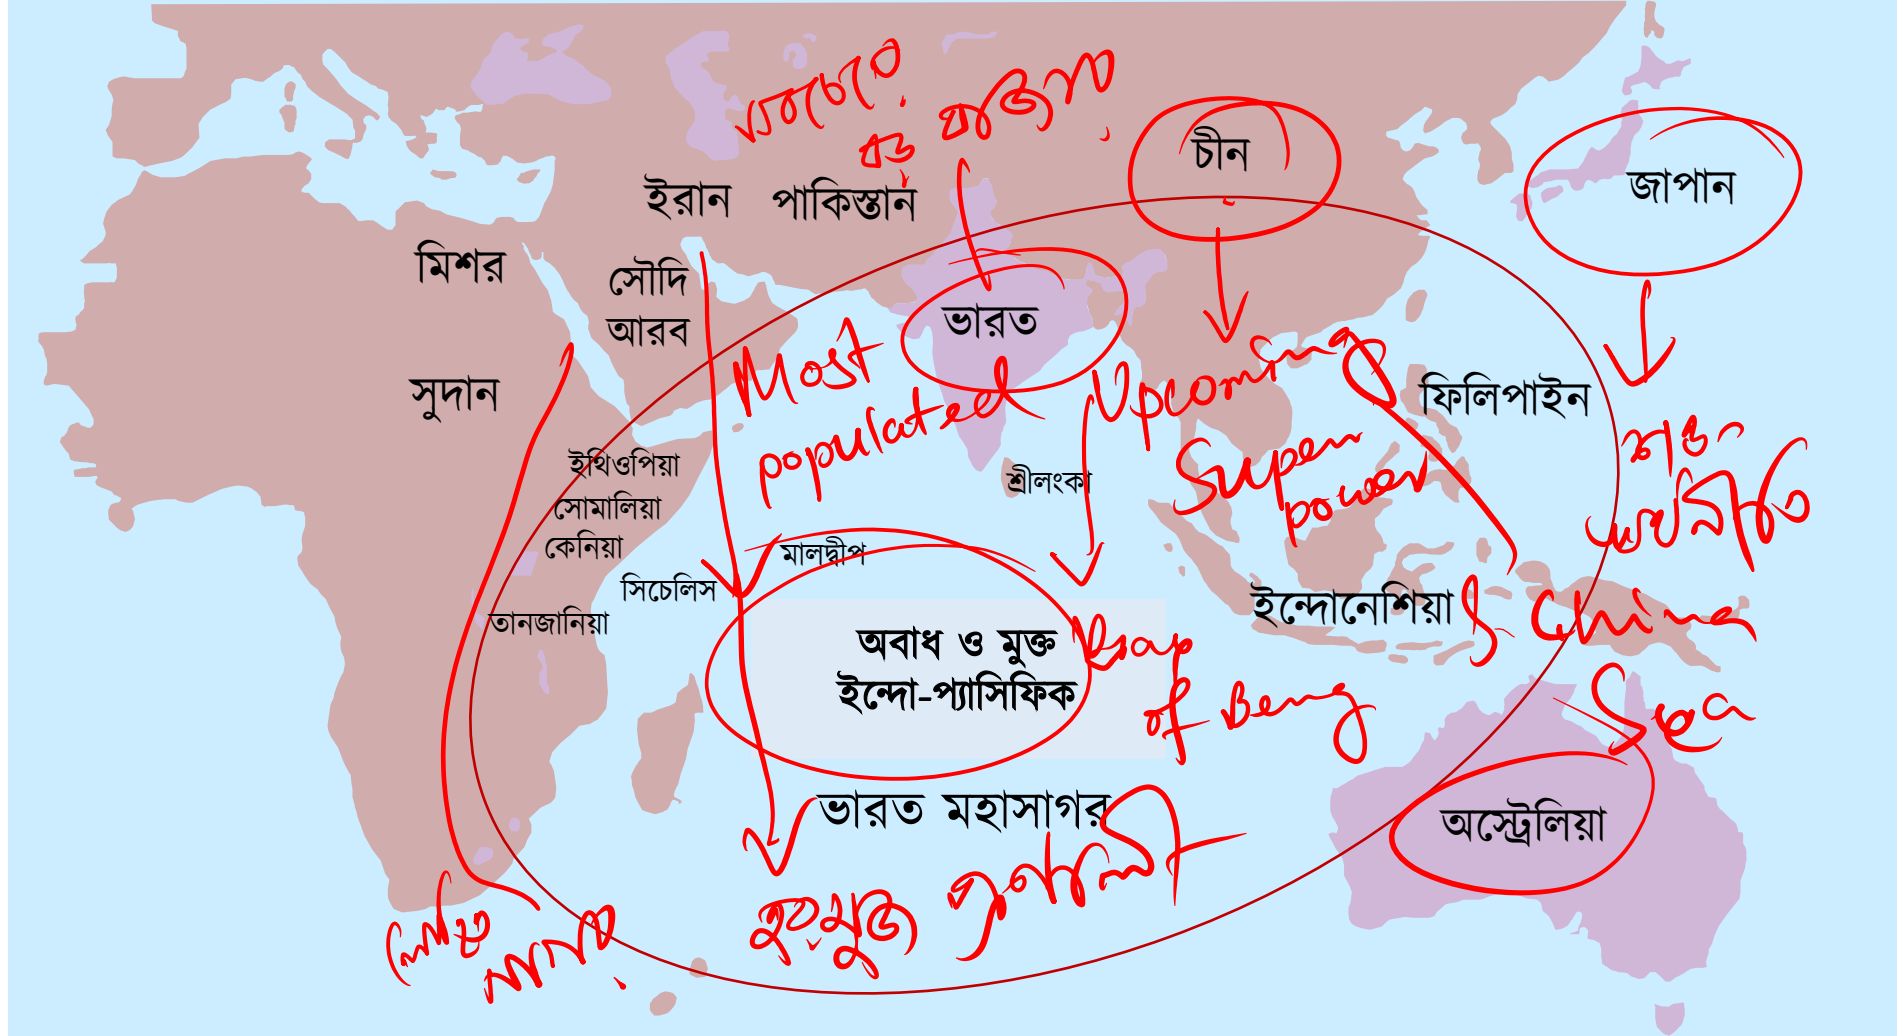 সবচেয়ে
বড় বাজার
চীন
জাপান
ইরান
পাকিস্তান
মিশর
সৌদি
আরব
ভারত
Most
populated
Upcoming
Super
power
সুদান
ফিলিপাইন
শক্ত
অর্থনীতি
ইথিওপিয়া
সোমালিয়া
কেনিয়া
শ্রীলংকা
মালদ্বীপ
সিচেলিস
তানজানিয়া
ইন্দোনেশিয়া
China
Sea
অবাধ ও মুক্ত
ইন্দো-প্যাসিফিক
of Beng
অস্ট্রেলিয়া
ভারত মহাসাগর
হরমুজ প্রণালী
লোহিত
সাগর